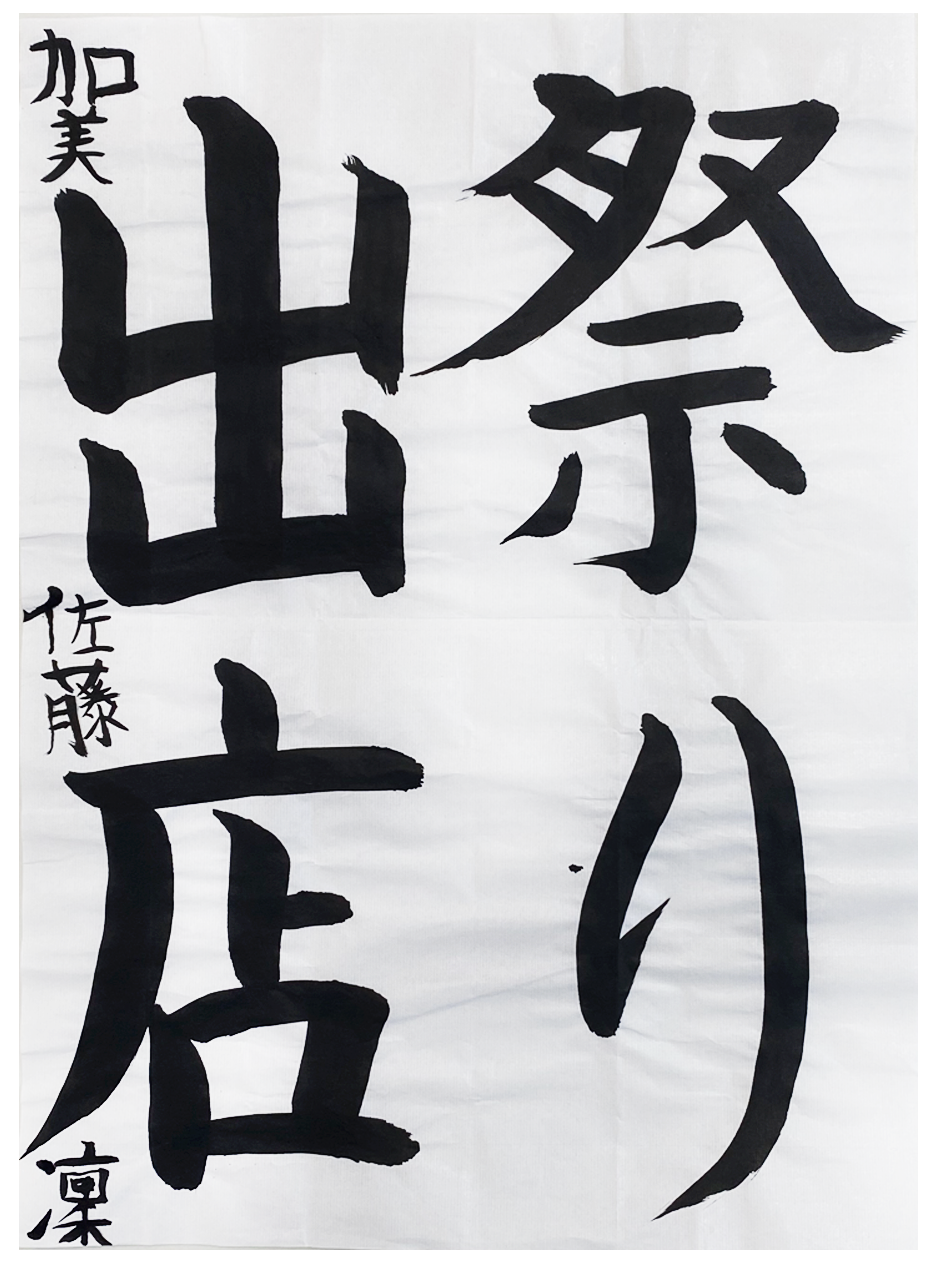 祭り
出店
加美 佐藤 凜